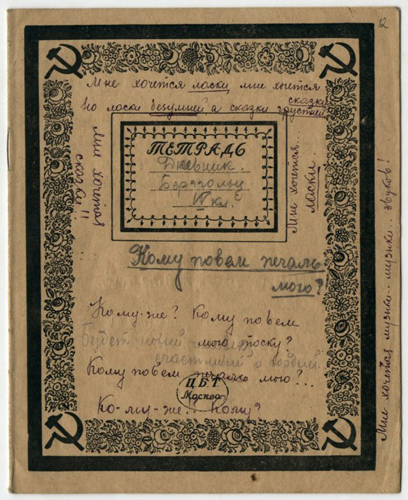 12
Мне хочется ласки, мне хочется
сказки
Но ласки безумней а сказки грустней
ТЕТРАДЬ
Дневник.
Берггольц
VI кл.
Мне хочется
сказки!!
Мне хочется
ласки
Мне хочется музыки.. музыки.. звуков!
Кому повем печаль
мою?
Кому-же? Кому повем
мою тоску?
Будет новый,
счастливый и новый
Кому повем печаль мою?...
ЦБТ
Москва
Ко-му-же.. Кому?